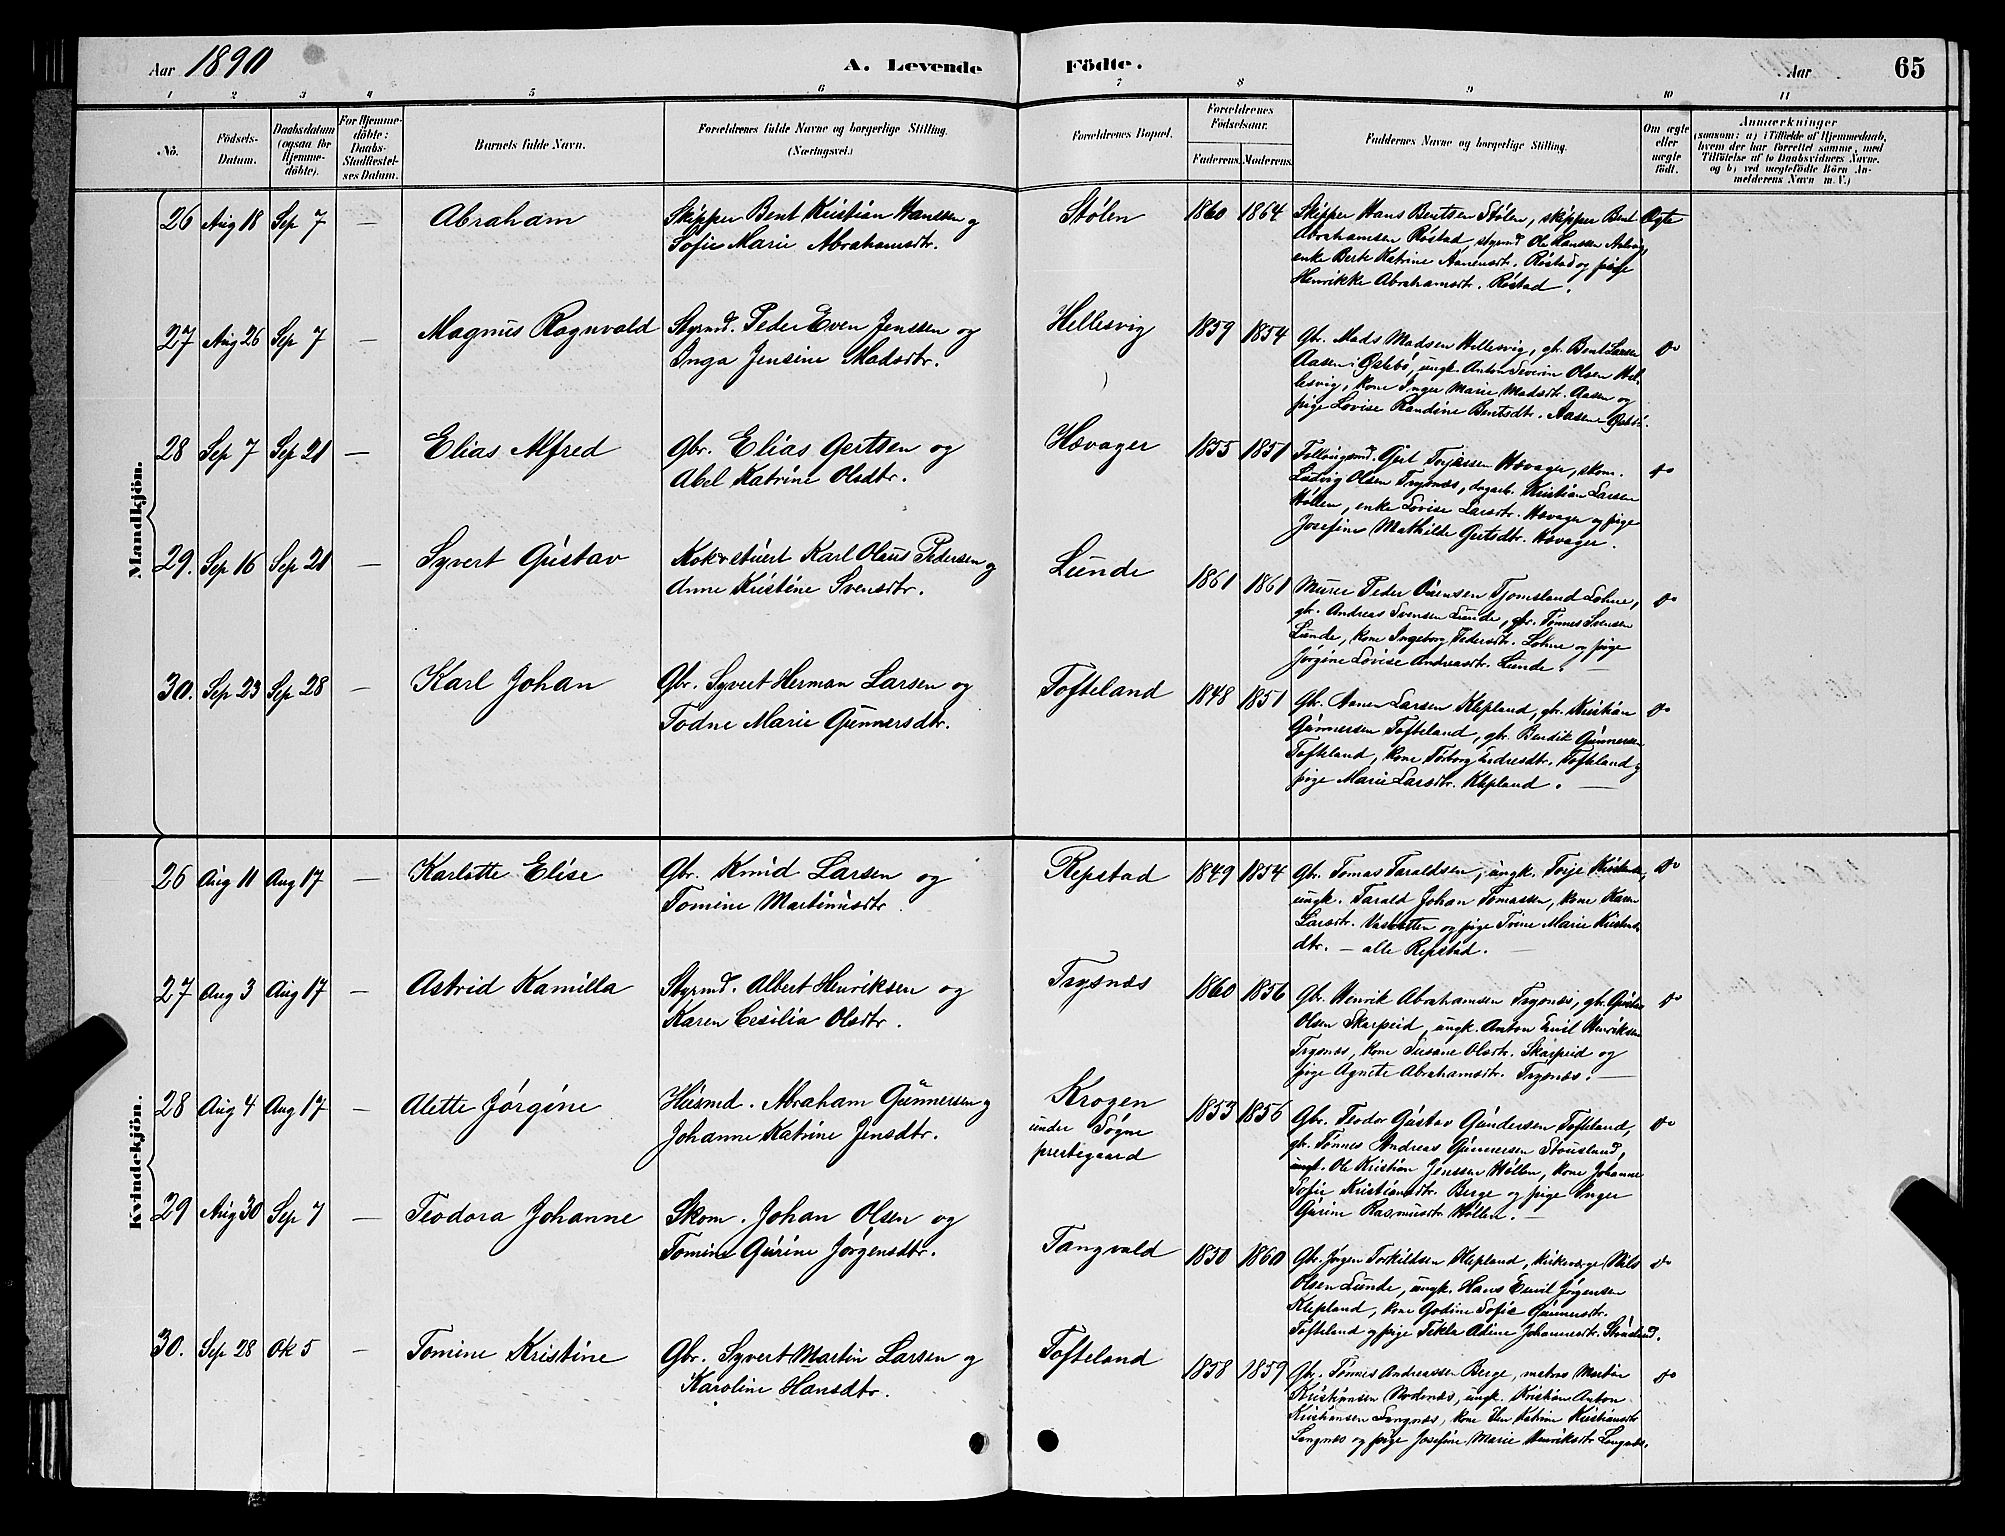 Aar 1890 A. Levende Födte. Aar 65
1 2 3 4 5 6 7 8 9 10 11
No.
Födsels-
Datum.
Daabsdatum
(ogsaa for
Hjemme-
döbte).
For Hjemme-
döbte:
Daabs-
Stadfæstel-
ses Datum.
Barnets fulde Navn.
Forældrenes fulde Navne og borgerlige Stilling.
(Næringsvei.)
Forældrenes Bopæl.
Forældrenes
Födselsaar.
Faderens. Moderens.
Faddernes Navne og borgerlige Stilling.
Om ægte
eller
uægte
födt.
Anmærkninger
(saasom: a) i Tilfælde af Hjemmedaab,
hvem der har forrettet samme, med
Tilföielse af to Daabsvidners Navne.
og b) ved uægtefödte Börn An-
melderens Navn m. V.)
Mandkjön.
26 Aug 18 Sep 7 — Abraham
Skipper Bent Kristian Hanssen og
Sofie Marie Abrahamsdtr.
Stølen 1860 1864
Skipper Hans Bentsen Stølen, skipper Bent
Abrahamsen Røstad, styrmd Ole Hanssen
enke Berte Katrine Aanensdt. Røstad og pige
Henrikke Abrahamsdt. Røstad.
Ægte
27 Aug 26 Sep 7 — Magnus Ragnvald
Styrmd. Peder Even Jenssen og
Inga Jensine Madsdtr.
Hellesvig 1859 1854
Gbr. Mads Madsen Hellesvig, gb. Bent Larsen
Aasen i Øslebø, ungk. Anton Severin Olsen Hel-
lesvig, kone Inger Marie Madsdt. Aasen og
pige Lovise Randine Bentsdtr. Aasen Øslebø.
do
28 Sep 7 Sep 21 — Elias Alfred
Gbr. Elias Gertsen og
Abel Katrine Olsdtr.
Hævager 1855 1851
Follaugsmd. Gert Torjussen Hævager, skom.
Ludvig Olsen Trysnæs, dagarb. Kristian Larsen
Høllen, enke Lovise Larsdtr. Hævager og pige
Josefine Mathilde Gertsdt. Hævager.
do
29. Sep 16 Sep 21 — Syvert Gustav
Kok & stuert Karl Olaus Pedersen og
Anne Kristine Svensdtr.
Lunde 1861 1861
Murer Peder Tjomsland Lohne,
gb. Andreas Svensen Lunde, gbr. Tønnes Svensen
Lunde, kone Ingeborg Pedersdt. Lohne og pige
Jørgine Lovise Andreasdt. Lunde.
do
30. Sep 23 Sep 28 — Karl Johan
Gbr. Syvert Herman Larsen og
Todne Marie Gunnersdtr.
Tofteland 1848 1851
Gbr. Aanen Larsen Klepland, gbr. Kristian
Gunnersen Tofteland, gbr. Bendik Gunnersen
Tofteland, kone Torborg Endresdtr. Tofteland og
pige Marie Larsdtr. Klepland. —
do
Kvindekjön.
26 Aug 11 Aug 17 — Karlotte Elise
Gbr. Knud Larsen og
Tomine Martinusdtr.
Repstad 1849 1854
Gbr. Tomas Taraldsen, ungk. Terje
ungk. Tarald Johan Tomassen, kone Karen
Larsdtr. og pige Trine Marie
dtr. — alle Repstad. —
do
27 Aug 3 Aug 17 — Astrid Kamilla
Styrmd. Albert Henriksen og
Karen Cesilia Olsdtr.
Trysnæs 1860 1856
Gbr. Henrik Abrahamsen Trysnæs, gbr.
Olsen Skarpeid, ungk. Anton Emil Henriksen
Trysnæs, kone Susane Olsdtr. Skarpeid og
pige Agnete Abrahamsdt. Trysnæs. —
do
28 Aug 4 Aug 17 — Alette Jørgine
Husmd. Abraham Gunnersen og
Johanne Katrine Jensdtr.
Krogen
under Søgne
prestegaard
1853 1856
Gbr. Teodor Gustav Gundersen Tofteland,
gb. Tønnes Andreas Gunnersen Stausland,
ungk. Ole Kristian Jenssen Høllen, kone Johanne
Sofie Kristiansdtr. Berge og pige Inger
Gurine Rasmusdtr Høllen. —
do
29 Aug 30 Sep 7 — Teodora Johanne
Skom. Johan Olsen og
Tomine Gurine Jørgensdtr.
Tangvald 1850 1860
Gbr. Jørgen Torkildsen Klepland, kirkeværge Nils
Olsen Lunde, ungk. Hans Emil Jørgensen
Klepland, kone Godine Sofie Gunnersdtr.
Tofteland og pige Tekla Adine Johannesdtr. Stausland.
do
30. Sep 28 Ok 5 — Tomine Kristine
Gbr. Syvert Martin Larsen og
Karoline Hansdtr.
Tofteland 1858 1859
Gbr. Tønnes Andreassen Berge, matros Martin
Kristiansen Nodenæs, ungk. Kristian Anton
Kristiansen Langnæs, kone Elen Katrine Kristiansdtr
Langnæs og pige Josefine Marie Henriksdtr Langnæs.
do